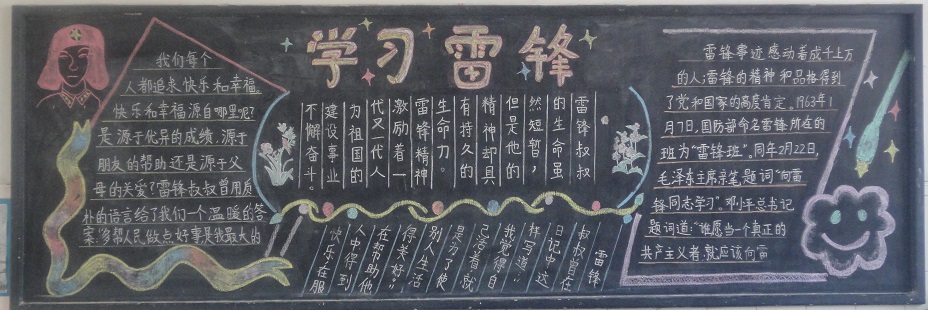 学习雷锋
我们每个
人都追求快乐和幸福
快乐和幸福源自哪里呢?
是源于优异的成绩,源于
朋友的帮助还是源于父
母的关爱?雷锋叔叔曾用质
朴的语言给了我们一个温暖的答
案:“多帮人民做点好事是我最大的
雷锋叔叔
的生命虽
然短暂,
但是他的
精神却具
有持久的
生命力。
雷锋精神
激励着一
代又一代人
为祖国的
建设事业
不懈奋斗。
雷锋
叔叔曾在
日记中这
样写道:
我觉得自
己活着就
是为了使
别人生活
得美好;
在帮助他
人中得到
快乐在服
雷锋事迹感动着成千上万
的人;雷锋的精神和品格得到
了党和国家的高度肯定。1963年1
月7日,国防部命名雷锋所在的
班为“雷锋班”。同年2月22日,
毛泽东主席亲笔题词“向雷
锋同志学习”。邓小平总书记
题词道:“谁愿当一个真正的
共产主义者,就应该向雷